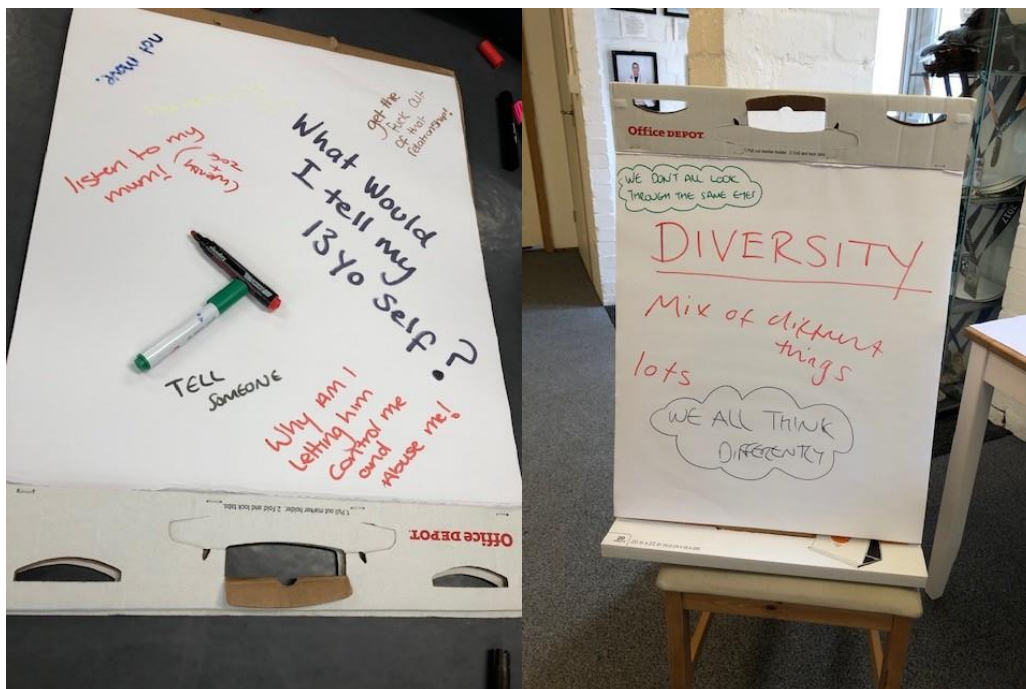 not move.
get the
fuck out
of that
relationship!
What Would
I tell my
13 yo self?
listen to my
mum
TELL
SOMEONE
Why Am I
Letting him
Control me
and
Abuse me!
1. Pull out marker holder. 2. Fold and lock tabs.
Office DEPOT.
Office DEPOT.
1. Pull out marker holder. 2. Fold and lock tabs.
WE DON'T ALL LOOK
THROUGH THE SAME EYES
DIVERSITY
Mix of different
things
lots
WE ALL THINK
DIFFERENTLY